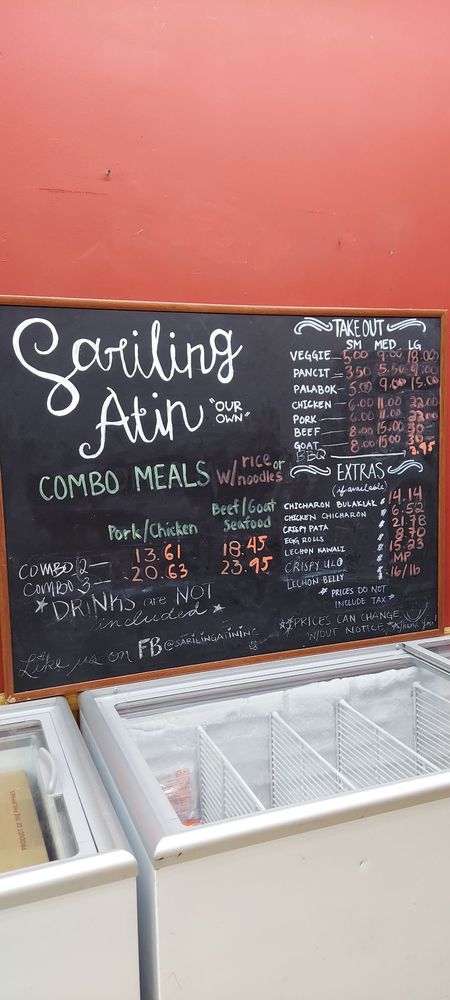 Sariling
Atin "OUR OWN"
COMBO MEALS w/ rice or noodles
Pork/Chicken Beef/Goat Seafood
COMBO 2 — 13.61 18.45
COMBO 3 — 20.63 23.95
*DRINKS are NOT
included *
Like us on FB @SARILINGATININC
TAKE OUT
SM MED. LG
VEGGIE 5.00 9.00 18.00
PANCIT 3.50 5.50 9.00
PALABOK 5.00 9.00 15.00
CHICKEN 6.00 11.00 22.00
PORK 6.00 11.00 22.00
BEEF 8.00 15.00 30
GOAT 8.00 15.00 30
BBQ 3.95
EXTRAS
(if available)
CHICHARON BULAKLAK 14.14
CHICKEN CHICHARON 6.52
CRISPY PATA 21.78
EGG ROLLS 8.70
LECHON KAWALI 15.23
CRISPY ULO MP
LECHON BELLY 16/lb
* PRICES DO NOT
INCLUDE TAX *
**PRICES CAN CHANGE
W/OUT NOTICE. Thank You!
PRODUCT OF THE PHILIPPINES